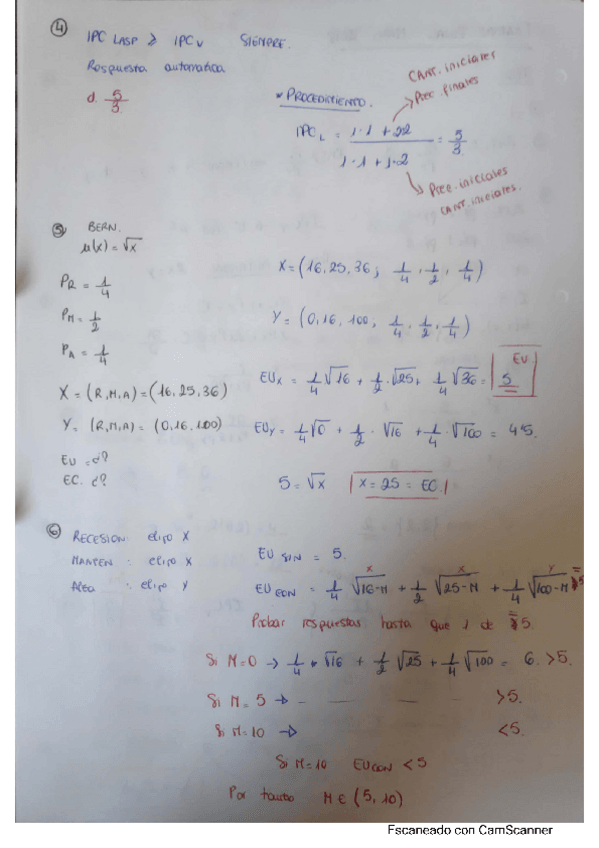 ④ IPC LASP ≥ IPCu SIEMPRE.
Respuesta automatica
d. 5/3
* PROCEDIMIENTO.
CANT. iniciales
Prec. finales
IPC_L = (1·1 + 2·2) / (1·1 + 1·2) = 5/3
Prec. iniciales
CANT. iniciales.
⑤ BERN.
μ(x) = √x
P_R = 1/4
P_M = 1/2
P_A = 1/4
X = (R,M,A) = (16,25,36)
Y = (R,M,A) = (0,16,100)
EU = ¿?
EC. ¿?
X = (16,25,36 ; 1/4, 1/2, 1/4)
Y = (0,16,100; 1/4, 1/2, 1/4)
EUx = 1/4 √16 + 1/2 · √25 + 1/4 √36 = 5 EU
EUy = 1/4 √0 + 1/2 · √16 + 1/4 · √100 = 4'5.
5 = √x x = 25 = EC.
⑥ RECESION: elijo X
MANTEN : elijo X
Alza : elijo Y
EU SIN = 5.
X X Y
EU CON = 1/4 √16-M + 1/2 √25-M + 1/4 √100-M = 5
Probar respuestas hasta que 1 de = 5.
Si M=0 → 1/4 · √16 + 1/2 √25 + 1/4 √100 = 6. >5.
Si M = 5 → - - - - >5.
Si M = 10 → <5.
Si M = 10 EU CON < 5
Por tanto M ∈ (5, 10)
Escaneado con CamScanner